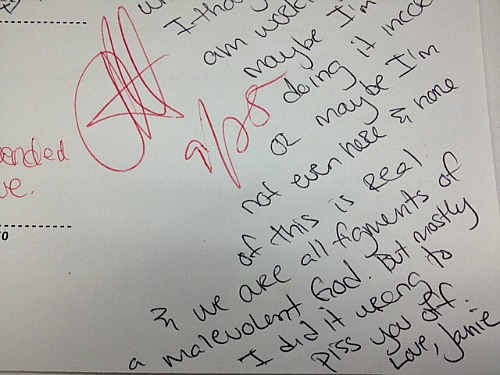 am week
maybe I'm
doing it inco
or maybe I'm
not even here & none
of this is real.
& we are all figments of
a malevolent God. But mostly
I did it wrong to
piss you off.
Love, Janie
onded
ve.